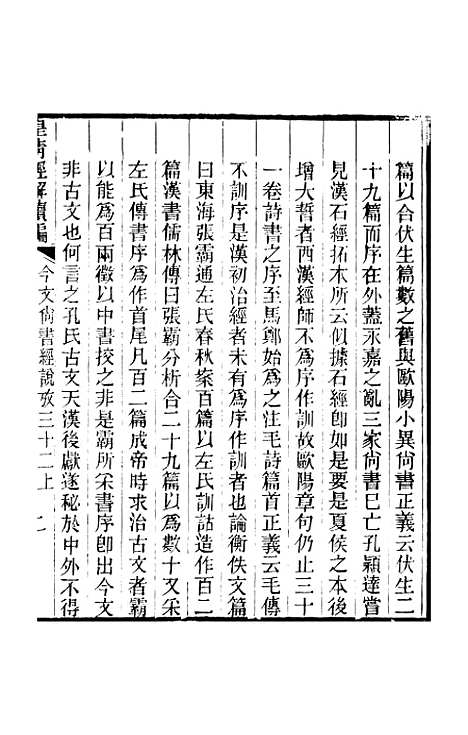 篇以合伏生篇數之舊與歐陽小異尚書正義云伏生二
十九篇而序在外蓋永嘉之亂三家尚書已亡孔穎達嘗
見漢石經拓本所云似據石經卽如是要是夏侯之本後
增大誓者西漢經師不爲序作訓故歐陽章句仍止三十
一卷詩書之序至馬鄭始爲之注毛詩篇首正義云毛傳
不訓序是漢初治經者未有爲序作訓者也論衡佚文篇
曰東海張霸通左氏春秋案百篇以左氏訓詁造作百二
篇漢書儒林傳曰張霸分析合二十九篇以爲數十又采
左氏傳書序爲作首尾凡百二篇成帝時求治古文者霸
以能爲百兩徵以中書挍之非是霸所采書序卽出今文
非古文也何言之孔氏古文天漢後獻遂秘於中外不得
皇淸經解續編
今文尙書經說攷三十二上